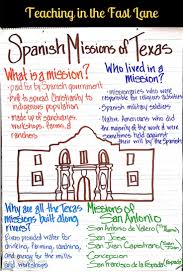 Teaching in the Fast Lane
Spanish Missions of Texas
What is a mission?
- paid for by Spanish government
- to spread Christianity to
indigenous population
- made up of
workshops, farms, &
ranchers
Who lived in a
mission?
- missionaries who were
responsible for religious activities
- Spanish military soldiers
- Native Americans who did
the majority of the work & were
sometimes held against
their will by the Spanish
Why are all the Texas
missions built along
rivers?
Rivers provided water for
drinking, farming, ranching,
and energy for the mills
and workshops
Missions of
San Antonio
San Antonio de Valero
San Jose
San Juan Capistrano
Concepcion
San Francisco de la Espada